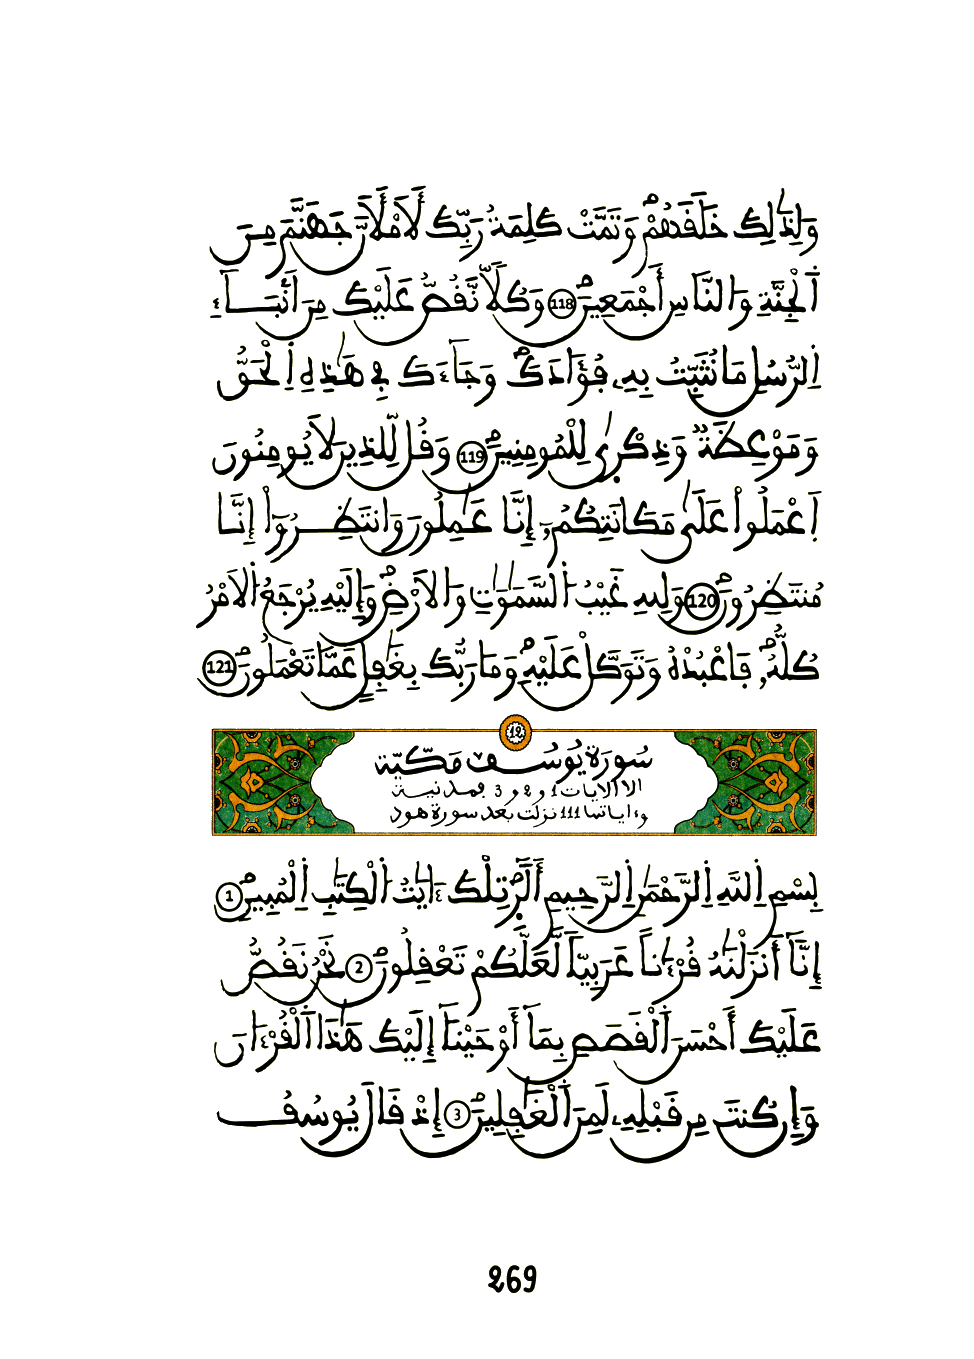 وَلِذَٰلِكَ خَلَقَهُمْ وَتَمَّتْ كَلِمَةُ رَبِّكَ لَأَمْلَأَنَّ جَهَنَّمَ مِنَ
اَ۬لْجِنَّةِ وَالنَّاسِ أَجْمَعِينَ 118 وَكُلّاٗ نَّقُصُّ عَلَيْكَ مِنَ اَنۢبَآءِ
اِ۬لرُّسُلِ مَا نُثَبِّتُ بِهِۦ فُؤَادَكَ وَجَآءَكَ فِي هَٰذِهِ اِ۬لْحَقُّ
وَمَوْعِظَةٞ وَذِكْر۪يٰ لِلْمُومِنِينَ 119 وَقُل لِّلذِينَ لَا يُومِنُونَ
اَ۪عْمَلُواْ عَلَىٰ مَكَانَتِكُمُۥٓ إِنَّا عَٰمِلُونَ وَانتَظِرُوٓاْ إِنَّا
مُنتَظِرُونَ 120 وَلِلهِ غَيْبُ اُ۬لسَّمَٰوَٰتِ وَالَارْضِ وَإِلَيْهِ يُرْجَعُ اُ۬لَامْرُ
كُلُّهُۥ فَاعْبُدْهُ وَتَوَكَّلْ عَلَيْهِ وَمَا رَبُّكَ بِغَٰفِلٍ عَمَّا تَعْمَلُونَ 121
12
سُورَةُ يُوسُف مَكِّيَّة
الا الايات 1 و 2 و 3 فمدنية
وءاياتها 111 نزلت بعد سورة هود
بِسْمِ اِ۬للَّهِ اِ۬لرَّحْمَٰنِ اِ۬لرَّحِيمِ أَلَٓر۪ تِلْكَ ءَايَٰتُ اُ۬لْكِتَٰبِ اِ۬لْمُبِينِ 1
إِنَّآ أَنزَلْنَٰهُ قُرْءَٰناً عَرَبِيّاٗ لَّعَلَّكُمْ تَعْقِلُونَ 2 نَحْنُ نَقُصُّ
عَلَيْكَ أَحْسَنَ اَ۬لْقَصَصِ بِمَآ أَوْحَيْنَآ إِلَيْكَ هَٰذَا اَ۬لْقُرْءَانَ
وَإِن كُنتَ مِن قَبْلِهِۦ لَمِنَ اَ۬لْغَٰفِلِينَ 3 إِذْ قَالَ يُوسُفُ
269